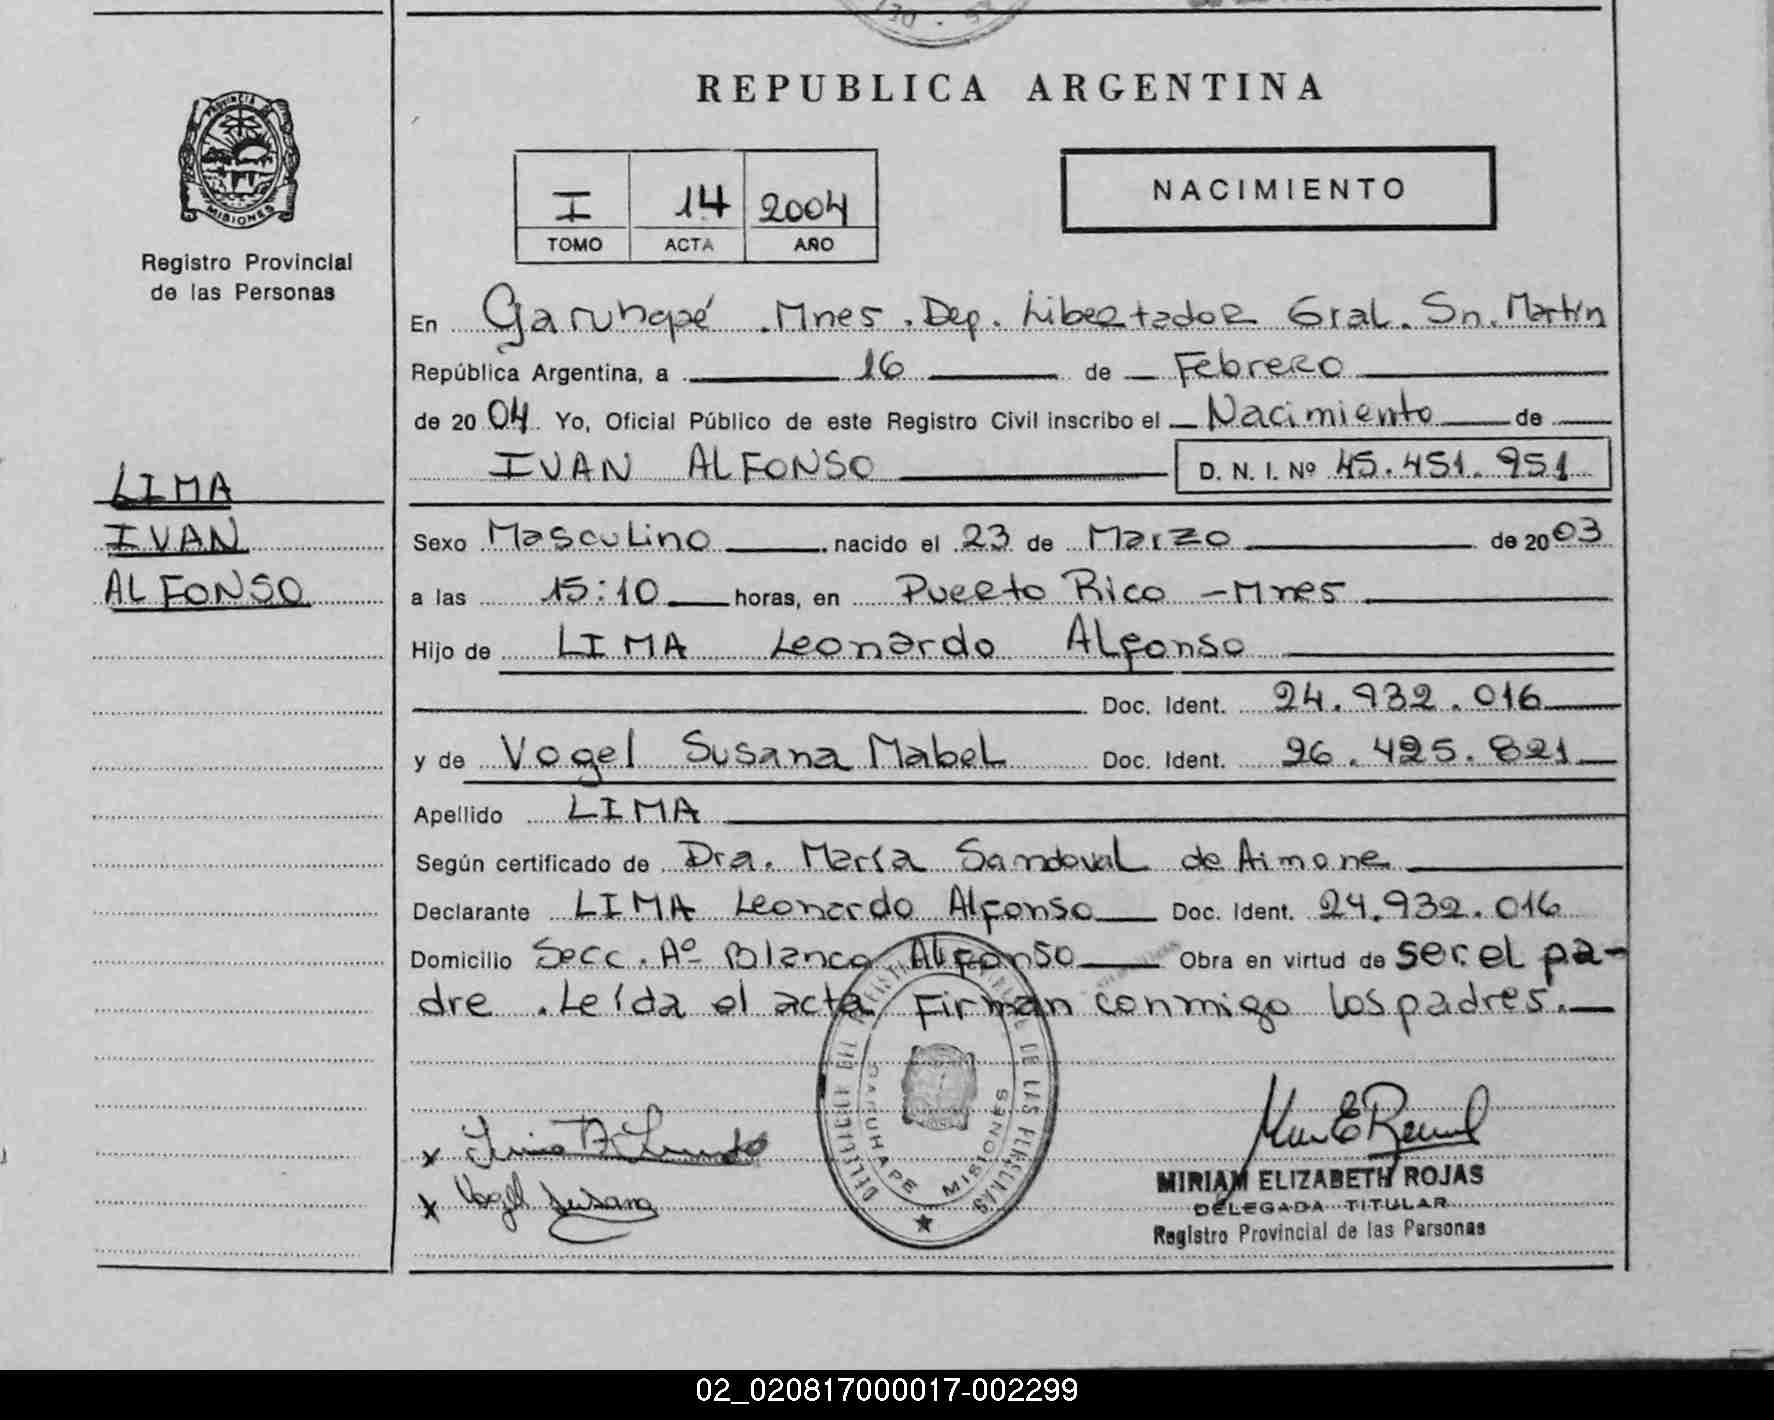 REPUBLICA ARGENTINA
PROVINCIA DE
MISIONES
Registro Provincial
de las Personas
I 14 2004
TOMO ACTA AÑO
NACIMIENTO
En Garuhapé . Mnes . Dep. Libertador Gral. Sn. Martín
República Argentina, a 16 de Febrero
de 2004. Yo, Oficial Público de este Registro Civil inscribo el Nacimiento de
IVAN ALFONSO D. N. I. Nº 45.451.951
LIMA
IVAN
ALFONSO
Sexo Masculino nacido el 23 de Marzo de 2003
a las 15:10 horas, en Puerto Rico - Mnes
Hijo de LIMA Leonardo Alfonso
Doc. Ident. 24.932.016
y de Vogel Susana Mabel Doc. Ident. 26.425.821
Apellido LIMA
Según certificado de Dra. María Sandoval de Aimone
Declarante LIMA Leonardo Alfonso Doc. Ident. 24.932.016
Domicilio Secc. Aº Blanco Alfonso Obra en virtud de ser el pa-
dre . Leída el acta Firman conmigo los padres.
DELEGACION DEL REGISTRO DE LAS PERSONAS
GARUHAPE MISIONES
x
x Vogel Susana
MIRIAM ELIZABETH ROJAS
DELEGADA TITULAR
Registro Provincial de las Personas
02_020817000017-002299